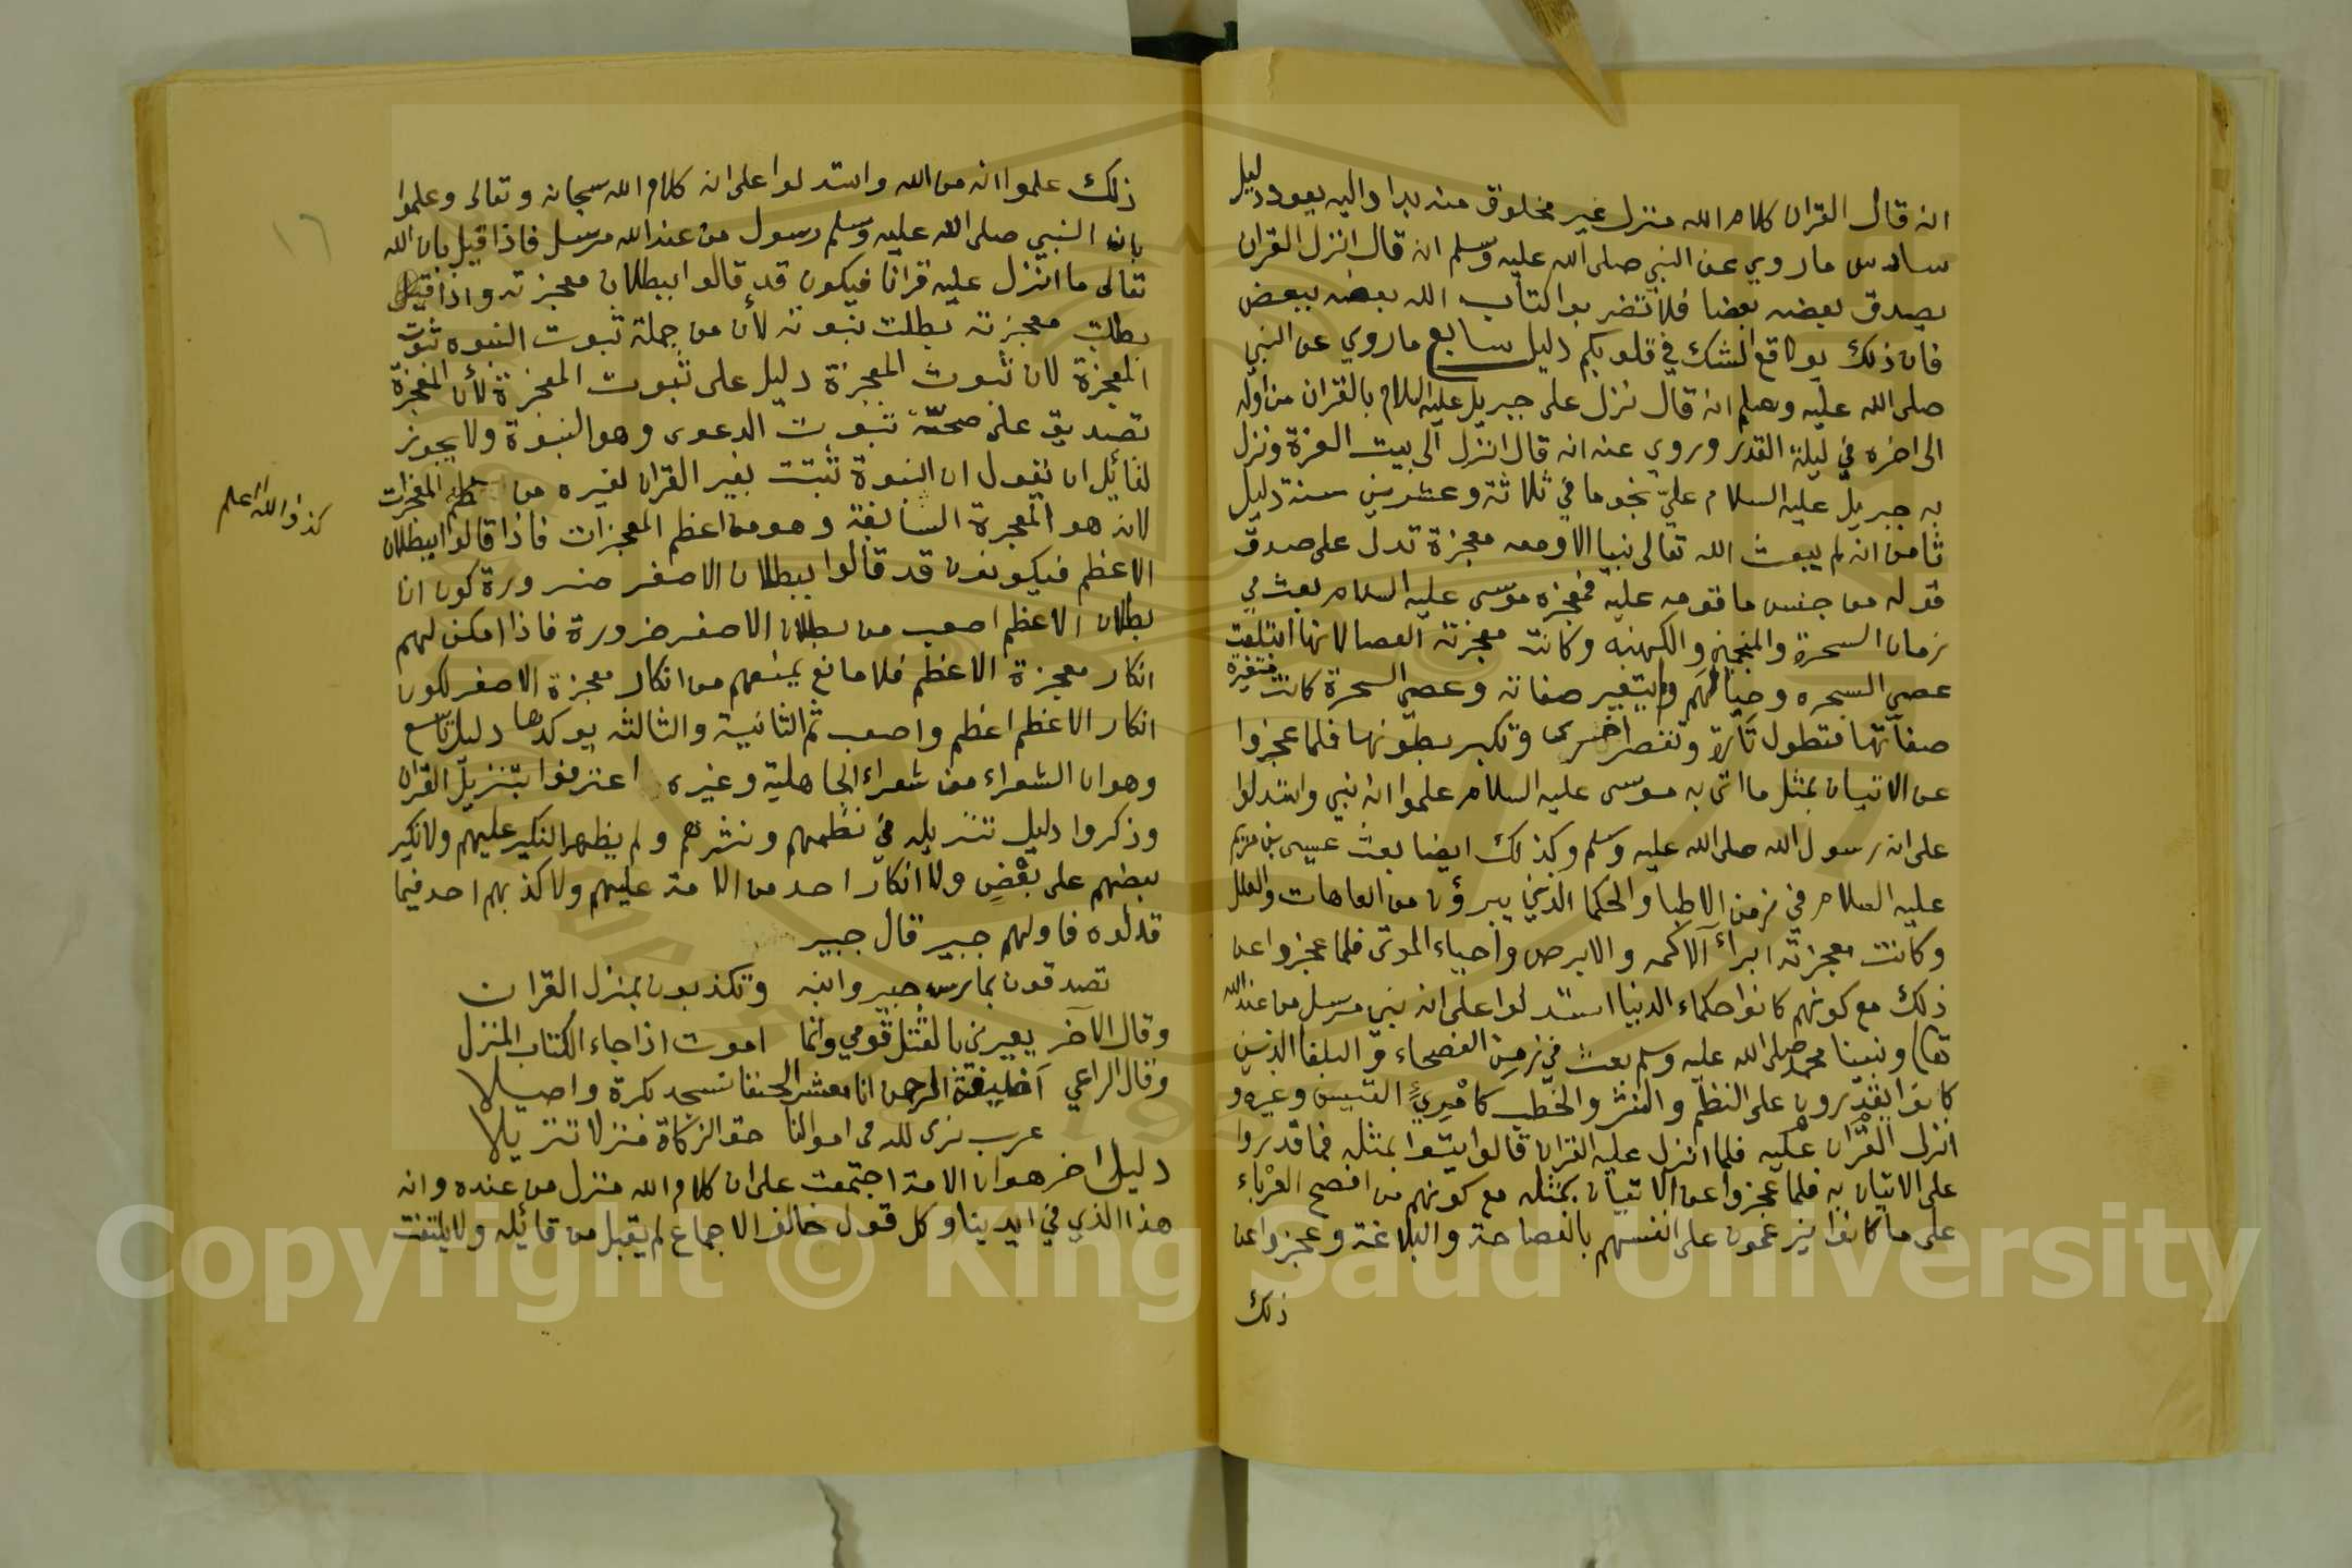 انه قال القران كلام الله منزل غير مخلوق منه بدا واليه يعود دليل
سادس ماروي عن النبي صلى الله عليه وسلم انه قال انزل القران
يصدق بعضه بعضا فلا تضربوا كتاب الله بعضه ببعض
فان ذلك يوقع الشك في قلوبكم دليل سابع ماروي عن النبي
صلى الله عليه وسلم انه قال نزل على جبريل عليه السلام بالقران من اوله
الى اخره في ليلة القدر وروي عنه انه قال انزل الى بيت العزة ونزل
به جبريل عليه السلام عليّ نجوما في ثلاثة وعشرين سنة دليل
ثامن انه لم يبعث الله تعالى نبيا الا ومعه معجزة تدل على صدق
قوله من جنس ما قومه عليه فمعجزه موسى عليه السلام بعث في
زمان السحرة والمنجمين والكهنه وكانت معجزته العصا لانها ابتلعت
عصي السحره وحبالهم ولم يتغير صفاته وعصي السحرة كانت متغيرة
صفاتها فتطول تارة وتقصر اخرى وتكبر بطونها فلما عجزوا
عن الاتيان بمثل ما اتى به موسى عليه السلام علموا انه نبي واستدلوا
على انه رسول الله صلى الله عليه وسلم وكذلك ايضا بعث عيسى بن مريم
عليه السلام في زمن الاطبا والحكما الذين يبرؤن من العاهات والعلل
وكانت معجزته ابراء الاكمه والابرص واحياء الموتى فلما عجزوا عن
ذلك مع كونهم كانوا حكماء الدنيا استدلوا على انه نبي مرسل من عند الله
تعالى ونبينا محمد صلى الله عليه وسلم بعث في زمن الفصحاء والبلغا الذين
كانوا يقدرون على النظم والنثر والخطب كامرئ القيس وغيره و
انزل القران عليه فلما انزل عليه القران قالوا يتوا بمثله فما قدروا
على الاتيان به فلما عجزوا عن الاتيان بمثله مع كونهم من افصح العرباء
على ما كانوا يزعمون على انفسهم بالفصاحة والبلاغة وعجزوا عن
ذلك
ذلك علموا انه من الله واستدلوا على انه كلام الله سبحانه وتعالى وعلموا
بان النبي صلى الله عليه وسلم رسول من عند الله مرسل فاذا قيل بان الله
تعالى ما انزل عليه قرانا فيكون قد قالوا ببطلان معجزته واذا قيل
بطلت معجزته بطلت نبوته لأن من جملة ثبوت النبوه ثبوت
المعجزة لان ثبوت المعجزة دليل على ثبوت المعجزة لأن المعجزة
تصديق على صحّة ثبوت الدعوى وهو النبوة ولا يجوز
لقائل ان يقول ان النبوة ثبتت بغير القران لغيره من المعجزات
لانه هو المعجزة السابقة وهو من اعظم المعجزات فاذا قالوا ببطلان
الاعظم فيكونون قد قالوا ببطلان الاصغر ضرورة كون ان
بطلان الاعظم اصعب من بطلان الاصغر ضرورة فاذا امكن لهم
انكار معجزة الاعظم فلا مانع يمنعهم من انكار معجزة الاصغر لكون
انكار الاعظم اعظم واصعب ثم الثانية والثالثه يوكدها دليل تاسع
وهو ان الشعراء من شعراء الجاهلية وغيره اعترفوا بتنزيل القران
وذكروا دليل تنزيله في نظمهم ونثرهم ولم يظهر النكير عليهم ولا نكير
بعضهم على بعض ولا انكار احد من الامة عليهم ولا كذبهم احد فيما
قالوه فاولهم جبير قال جبير
تصدقون بمارس جبير وابنه وتكذبون بمنزل القران
وقال الآخر يعيرني بالقتل قومي وانما اموت اذا جاء الكتاب المنزل
وقال الراعي أخليفة الرحمن انا معشر الحنفا نسجد بكرة واصيلا
عرب نرى لله في اموالنا حق الزكاة منزلا تنزيلا
دليل اخر هو ان الامة اجتمعت على ان كلام الله منزل من عنده وانه
هذا الذي في ايدينا وكل قول خالف الاجماع لم يقبل من قائله ولا يلتفت
١٦
والله اعلم
Copyright © King Saud University